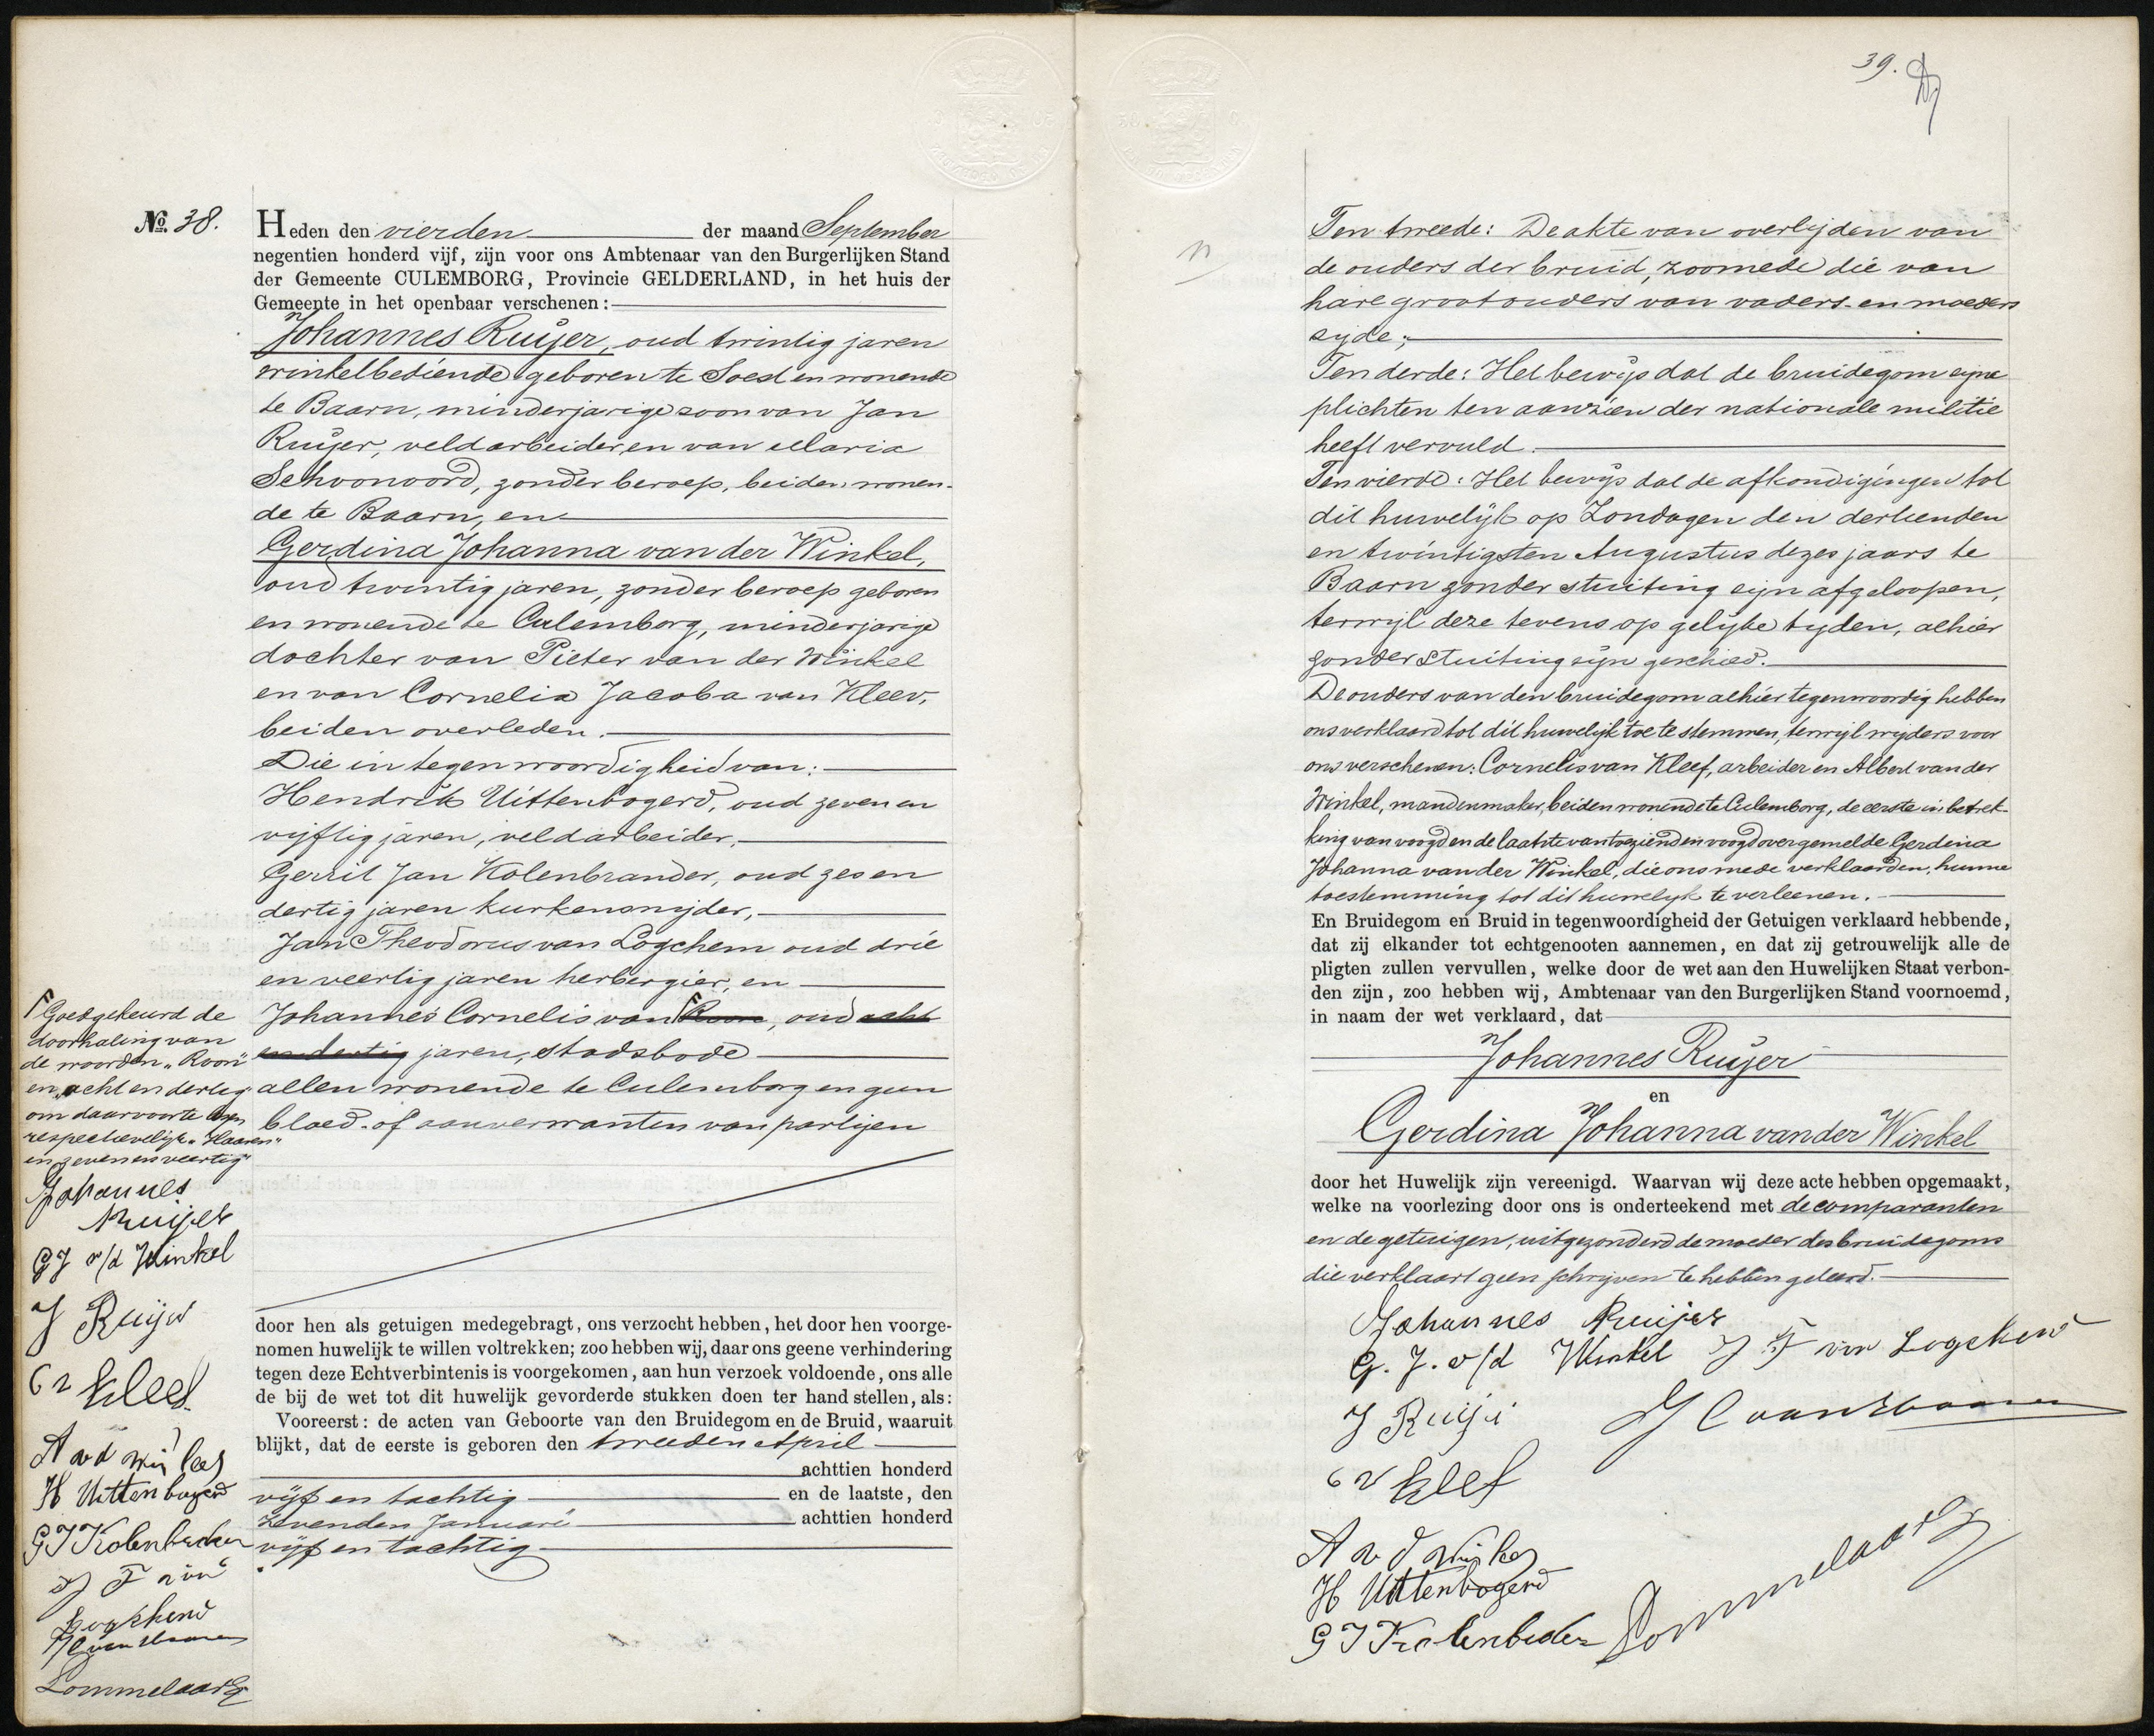 No. 38.
Heden den vierden der maand September
negentien honderd vijf, zijn voor ons Ambtenaar van den Burgerlijken Stand
der Gemeente CULEMBORG, Provincie GELDERLAND, in het huis der
Gemeente in het openbaar verschenen:
Johannes Ruijer, oud twintig jaren
winkelbediende geboren te Soest en wonende
te Baarn, minderjarige zoon van Jan
Ruijer, veldarbeider, en van Maria
Schoonoord, zonder beroep, beiden wonen-
de te Baarn, en
Gerdina Johanna van der Winkel,
oud twintig jaren, zonder beroep geboren
en wonende te Culemborg, minderjarige
dochter van Pieter van der Winkel
en van Cornelia Jacoba van Kleev,
beiden overleden.
Die in tegenwoordigheid van:
Hendrik Uittenbogerd, oud zeven en
vijftig jaren, veldarbeider,
Gerrit Jan Kolenbrander, oud zes en
dertig jaren kurkensnijder,
Jan Theodorus van Logchem oud drie
en veertig jaren herbergier, en
Johannes Cornelis van Roon, oud acht
en dertig jaren, stadsbode
allen wonende te Culemborg en geen
bloed- of aanverwanten van partijen
Goedgekeurd de
doorhaling van
de woorden "Roon"
en "acht en dertig"
om daarvoor te lezen
respectievelijk "Haaren"
en "zeven en veertig"
Johannes
Ruijer
GJ v/d Winkel
J Ruijer
C v Kleef
A v d Winkel
H Uittenbogerd
G J Kolenbrander
J T van
Logchem
J C van Haaren
Sommelaar
door hen als getuigen medegebragt, ons verzocht hebben, het door hen voorge-
nomen huwelijk te willen voltrekken; zoo hebben wij, daar ons geene verhindering
tegen deze Echtverbintenis is voorgekomen, aan hun verzoek voldoende, ons alle
de bij de wet tot dit huwelijk gevorderde stukken doen ter hand stellen, als:
Vooreerst: de acten van Geboorte van den Bruidegom en de Bruid, waaruit
blijkt, dat de eerste is geboren den tweeden April
achttien honderd
vijf en tachtig en de laatste, den
zevenden Januari achttien honderd
vijf en tachtig
39.
Ten tweede: De akte van overlijden van
de ouders der bruid, zoomede die van
hare grootouders van vaders- en moeders
zyde;
Ten derde: Het bewijs dat de bruidegom zijne
plichten ten aanzien der nationale militie
heeft vervuld.
Ten vierde: Het bewijs dat de afkondigingen tot
dit huwelijk op Zondagen den dertienden
en twintigsten Augustus dezes jaars te
Baarn zonder stuiting zijn afgeloopen,
terwijl deze tevens op gelijke tijden, alhier
zonder stuiting zijn geschied.
De ouders van den bruidegom alhier tegenwoordig hebben
ons verklaard tot dit huwelijk toe te stemmen, terwijl wijders voor
ons verschenen: Cornelis van Kleef, arbeider en Albert van der
Winkel, mandenmaker, beiden wonende te Culemborg, de eerste in betrek-
king van voogd en de laatste van toezienden voogd over gemelde Gerdina
Johanna van der Winkel, die ons mede verklaarden, hunne
toestemming tot dit huwelijk te verleenen.
En Bruidegom en Bruid in tegenwoordigheid der Getuigen verklaard hebbende,
dat zij elkander tot echtgenooten aannemen, en dat zij getrouwelijk alle de
pligten zullen vervullen, welke door de wet aan den Huwelijken Staat verbon-
den zijn, zoo hebben wij, Ambtenaar van den Burgerlijken Stand voornoemd,
in naam der wet verklaard, dat
Johannes Ruijer
en
Gerdina Johanna van der Winkel
door het Huwelijk zijn vereenigd. Waarvan wij deze acte hebben opgemaakt,
welke na voorlezing door ons is onderteekend met de comparanten
en de getuigen, uitgezonderd de moeder des bruidegoms
die verklaart geen schrijven te hebben geleerd.
Johannes Ruijer
G. J. v/d Winkel J T van Logchem
J Ruijer J C van Haaren
C v Kleef
A v d Winkel
H Uittenbogerd
G J Kolenbrander Sommelaar